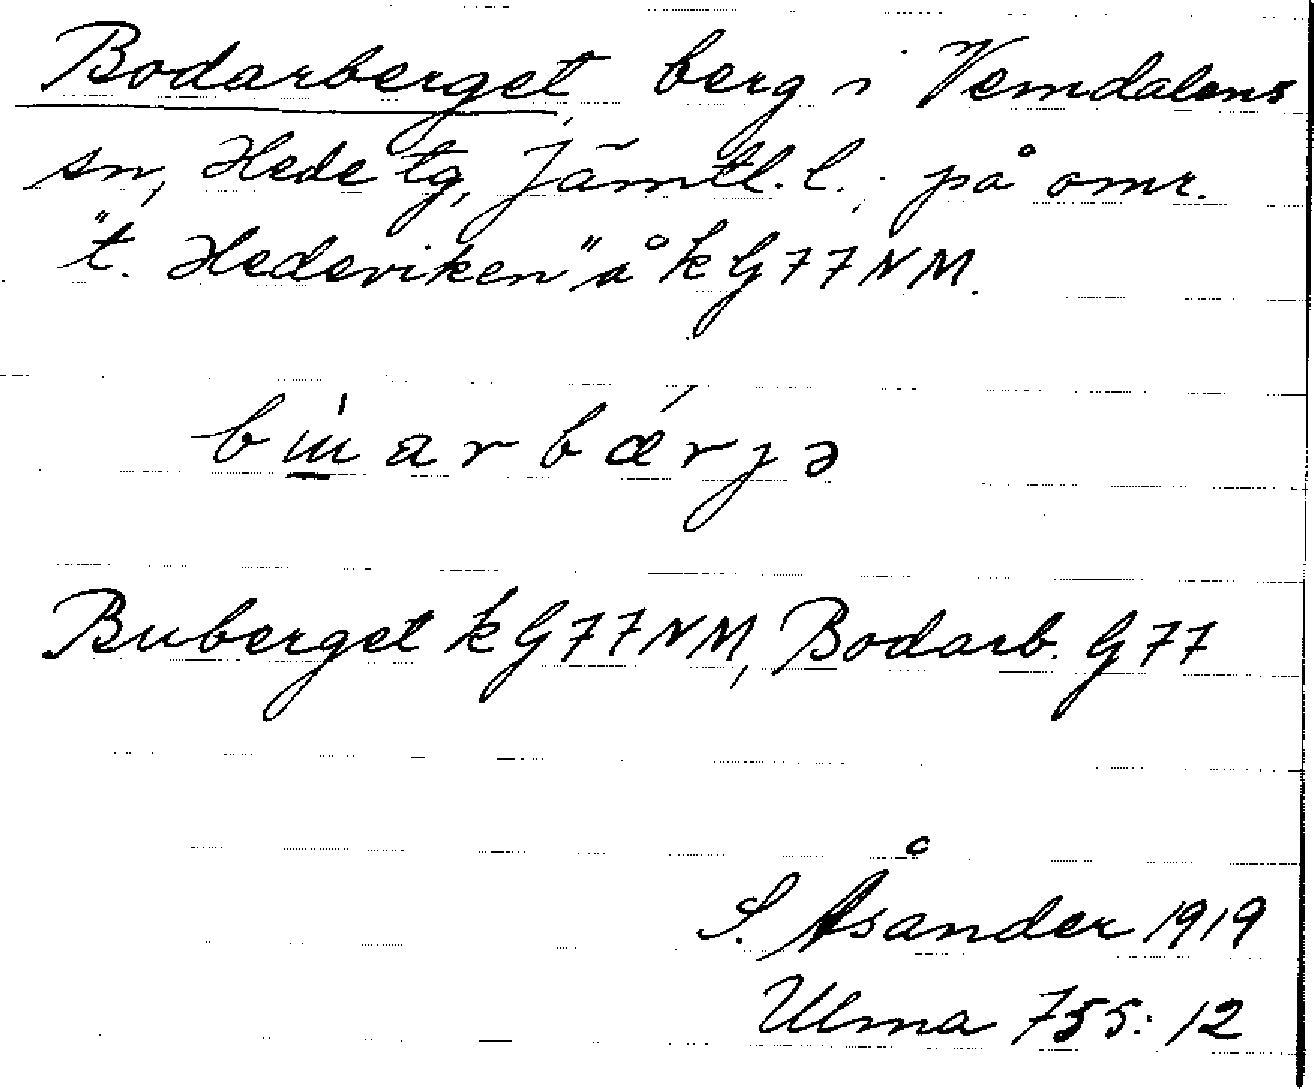 Bodarberget, berg i Vemdalens
sn, Hede tg, Jämtl. l.; på omr.
"t. Hedeviken" å k G 77 NM.
Buberget k G 77 NM, Bodarb. G 77
S. Åsander 1919
Ulma 755: 12